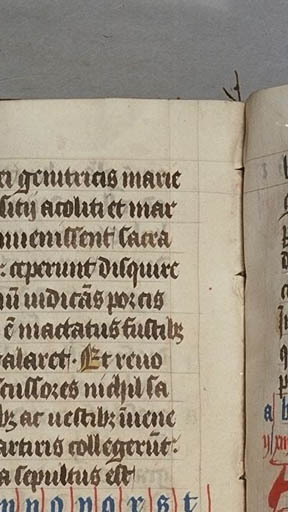 ei genitricis marie
sitij acoliti et mar
inuenissent sacra
ceperunt disquire
nū uidicās porcis
ē mactatus fustibꝫ
alaret. Et reuo
cussores nichil sa
bꝫ ac uestibꝫ īuene
artiris collegerūt.
a sepultus est
n o p q r s t